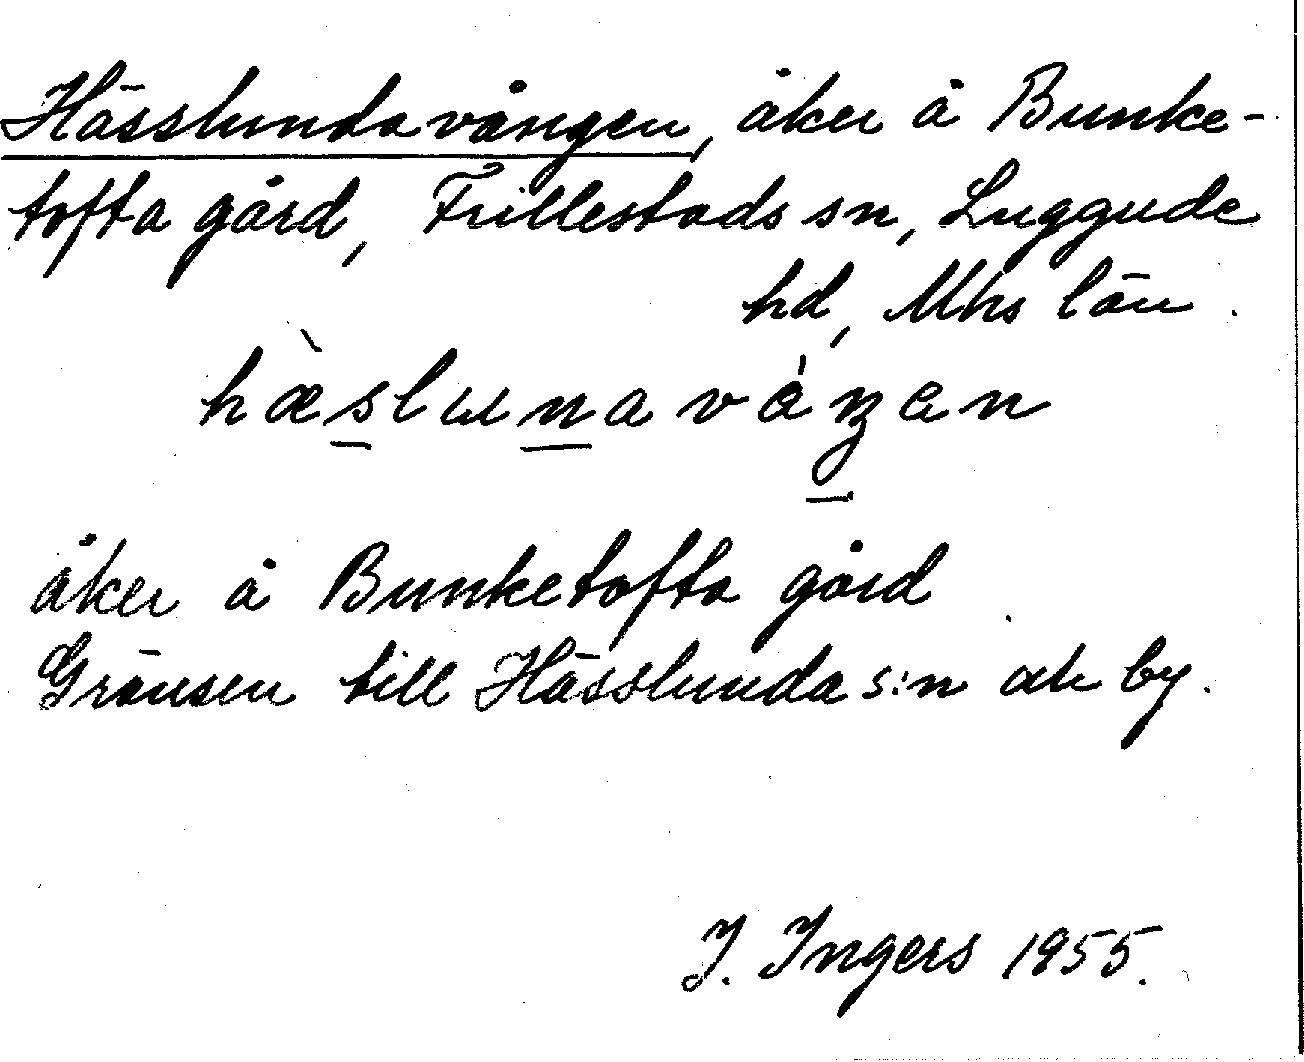 Hässlundavången, åker å Bunke-
tofta gård, Frillestads sn, Luggude
hd, Mhs län.
hæ̀slunaváŋen
åker å Bunketofta gård
Gränsen till Hässlunda s:n och by.
I. Ingers 1955.